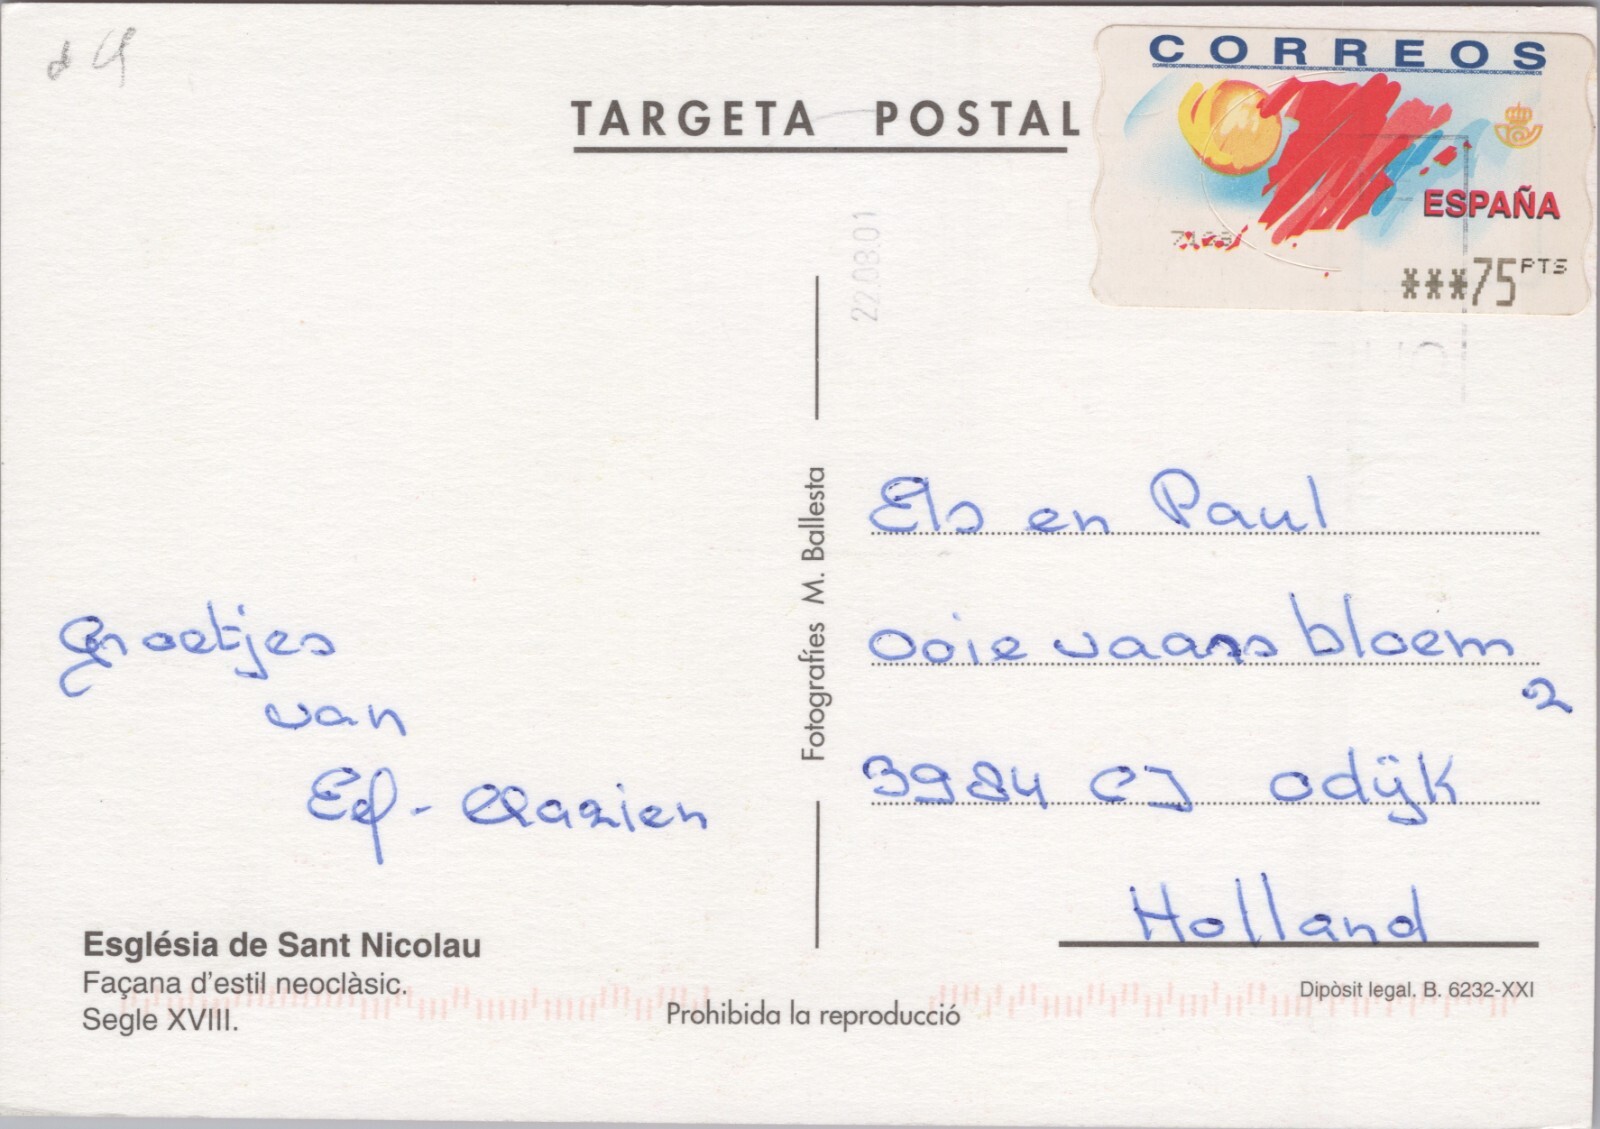 TARGETA POSTAL
CORREOS
ESPAÑA
***75 PTS
22.08.01
Fotografíes M. Ballesta
Els en Paul
ooievaarsbloem
2
3984 CJ Odijk
Holland
Groetjes
van
Ed - Clazien
Església de Sant Nicolau
Façana d'estil neoclàsic.
Segle XVIII.
Prohibida la reproducció
Dipòsit legal. B. 6232-XXI